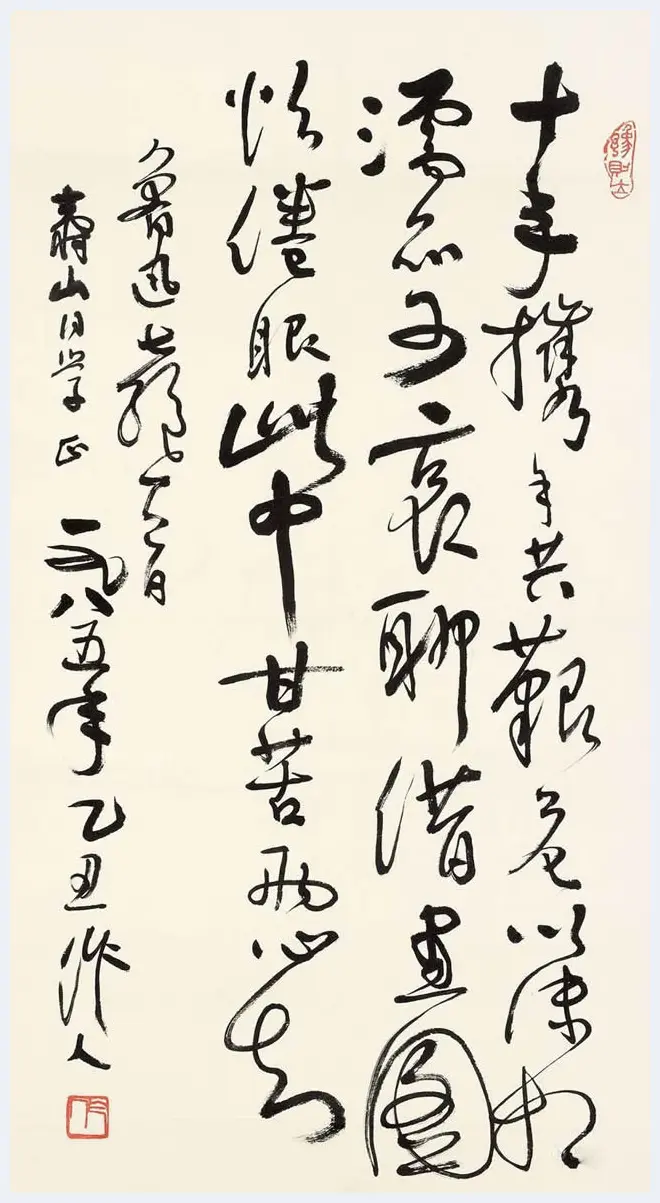 豫則立
十年攜手共艱危以沫相
濡亦可哀聊借畫圖
怡倦眼此中甘苦兩心知
魯迅七一首
壽山同学正 一九八五年乙丑 作人